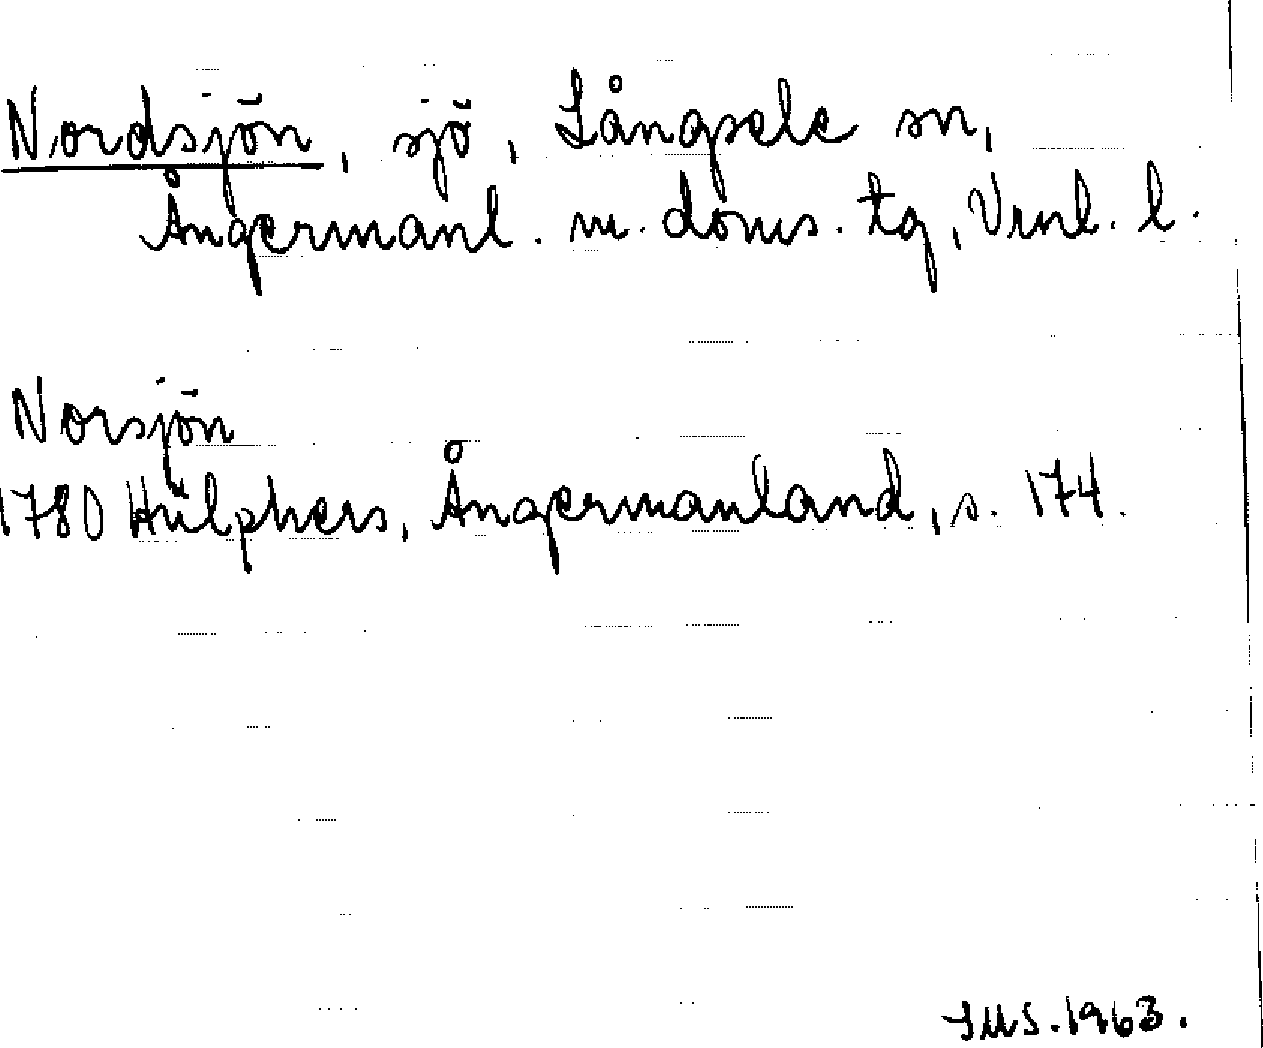 Nordsjön, sjö, Långsele sn,
Ångermanl. m. doms. tg, Vnrl. l.
Norsjön
1780 Hülphers, Ångermanland, s. 174.
IMS. 1963.